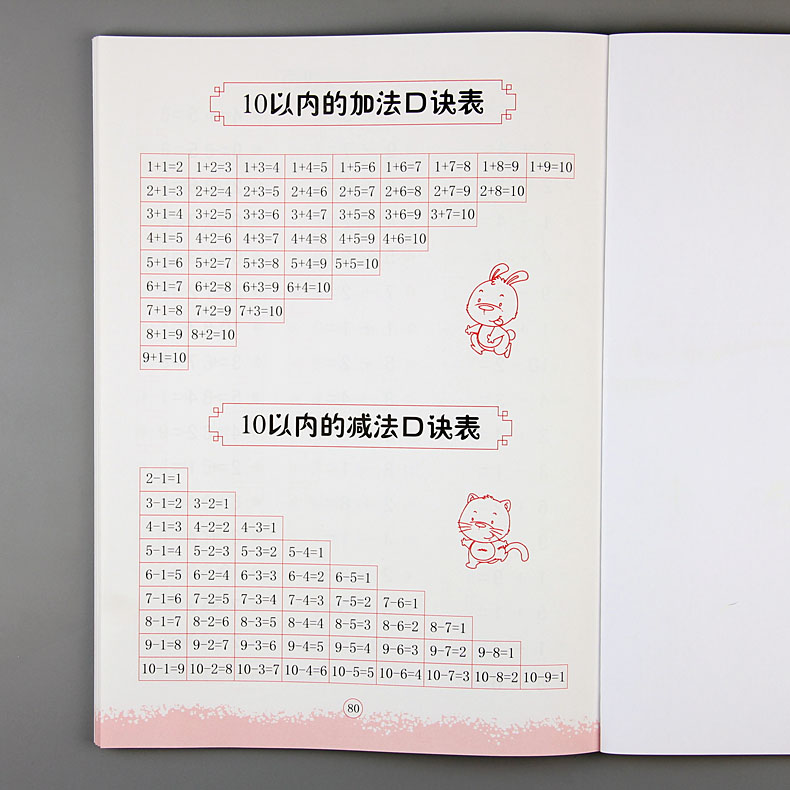 10以内的加法口诀表
1+1=2 1+2=3 1+3=4 1+4=5 1+5=6 1+6=7 1+7=8 1+8=9 1+9=10
2+1=3 2+2=4 2+3=5 2+4=6 2+5=7 2+6=8 2+7=9 2+8=10
3+1=4 3+2=5 3+3=6 3+4=7 3+5=8 3+6=9 3+7=10
4+1=5 4+2=6 4+3=7 4+4=8 4+5=9 4+6=10
5+1=6 5+2=7 5+3=8 5+4=9 5+5=10
6+1=7 6+2=8 6+3=9 6+4=10
7+1=8 7+2=9 7+3=10
8+1=9 8+2=10
9+1=10
10以内的减法口诀表
2-1=1
3-1=2 3-2=1
4-1=3 4-2=2 4-3=1
5-1=4 5-2=3 5-3=2 5-4=1
6-1=5 6-2=4 6-3=3 6-4=2 6-5=1
7-1=6 7-2=5 7-3=4 7-4=3 7-5=2 7-6=1
8-1=7 8-2=6 8-3=5 8-4=4 8-5=3 8-6=2 8-7=1
9-1=8 9-2=7 9-3=6 9-4=5 9-5=4 9-6=3 9-7=2 9-8=1
10-1=9 10-2=8 10-3=7 10-4=6 10-5=5 10-6=4 10-7=3 10-8=2 10-9=1
80